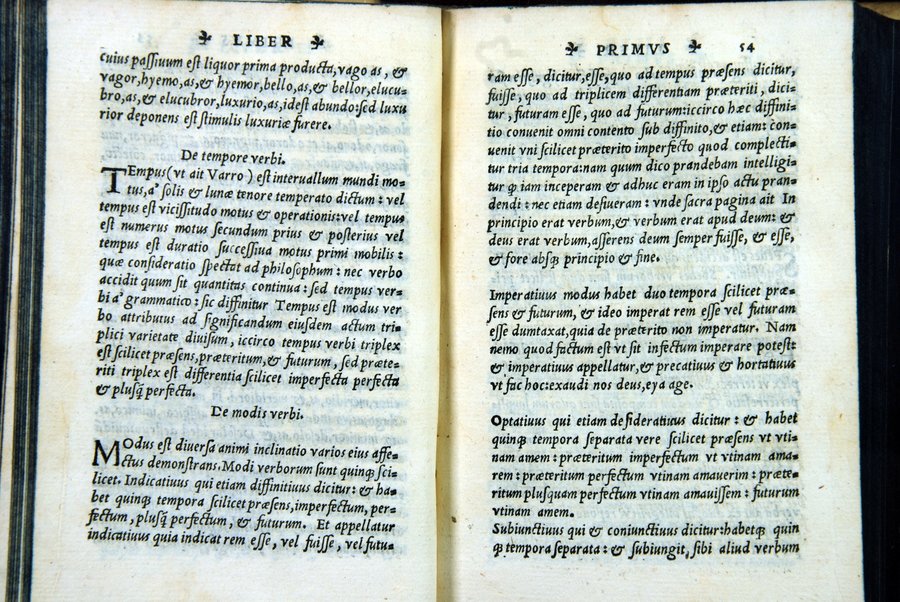 LIBER
cuius passiuum est liquor prima producta, vago as, &
vagor, hyemo, as, & hyemor, bello, as, & bellor, elucu-
bro, as, & elucubror, luxurio, as, idest abundo: sed luxu
rior deponens est stimulis luxuriæ furere.
De tempore verbi.
TEmpus (vt ait Varro) est interuallum mundi mo-
tus, a' solis & lunæ tenore temperato dictum: vel
tempus est vicissitudo motus & operationis: vel tempus
est numerus motus secundum prius & posterius vel
tempus est duratio successiua motus primi mobilis:
quæ consideratio spectat ad philosophum: nec verbo
accidit quum sit quantitas continua: sed tempus ver-
bi a' grammatico: sic diffinitur Tempus est modus ver
bo attributus ad significandum eiusdem actum tri-
plici varietate diuisum, iccirco tempus verbi triplex
est scilicet præsens, præteritum, & futurum, sed præte-
riti triplex est differentia scilicet imperfecta perfecta
& plusq̃ perfecta.
De modis verbi.
MOdus est diuersa animi inclinatio varios eius affe-
ctus demonstrans. Modi verborum sunt quinq; sci-
licet. Indicatiuus qui etiam diffinitiuus dicitur: & ha-
bet quinq; tempora scilicet præsens, imperfectum, per-
fectum, plusq̃ perfectum, & futurum. Et appellatur
indicatiuus quia indicat rem esse, vel fuisse, vel futu-
PRIMVS 54
ram esse, dicitur, esse, quo ad tempus præsens dicitur,
fuisse, quo ad triplicem differentiam præteriti, dici-
tur, futuram esse, quo ad futurum: iccirco hæc diffini-
tio conuenit omni contento sub diffinito, & etiam: cõ-
uenit vni scilicet præterito imperfecto quod complecti-
tur tria tempora: nam quum dico prandebam intelligi-
tur q̃ iam inceperam & adhuc eram in ipso actu pran-
dendi: nec etiam desueram: vnde sacra pagina ait In
principio erat verbum, & verbum erat apud deum: &
deus erat verbum, asserens deum semper fuisse, & esse,
& fore absq; principio & fine.
Imperatiuus modus habet duo tempora scilicet præ-
sens & futurum, & ideo imperat rem esse vel futuram
esse dumtaxat, quia de præterito non imperatur. Nam
nemo quod factum est vt sit infectum imperare potest:
& imperatiuus appellatur, & precatiuus & hortatiuus
vt fac hoc: exaudi nos deus, eya age.
Optatiuus qui etiam desideratiuus dicitur: & habet
quinq; tempora separata vere scilicet præsens vt vti-
nam amem: præteritum imperfectum vt vtinam ama-
rem: præteritum perfectum vtinam amauerim: præte-
ritum plusquam perfectum vtinam amauissem: futurum
vtinam amem.
Subiunctiuus qui & coniunctiuus dicitur: habetq; quin
q; tempora separata: & subiungit, sibi aliud verbum